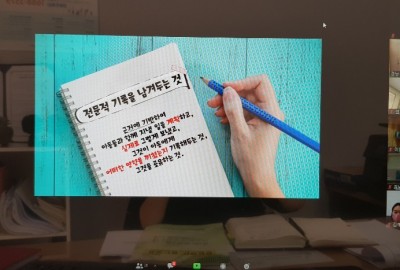 전문적 기록을 남겨두는 것
근거에 기반하여
아동들과 함께 지낼 일을 계획하고,
실제로 그렇게 보내고,
그것이 아동에게
어떠한 영향을 끼쳤는지 기록해두는 것.
그것을 공유하는 것.